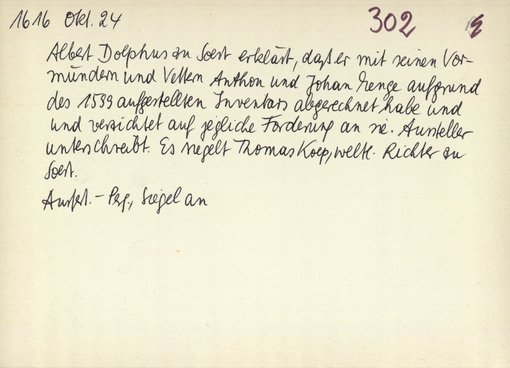 1616 Okt. 24 302
Albert Dolphus zu Soest erklärt, daß er mit seinen Vor-
mündern und Vettern Anthon und Johan Menge aufgrund
des 1599 aufgestellten Inventars abgerechnet habe und
und verzichtet auf jegliche Forderung an sie. Aussteller
unterschreibt. Es siegelt Thomas Koep, weltl. Richter zu
Soest.
Ausfert. - Perg., Siegel an